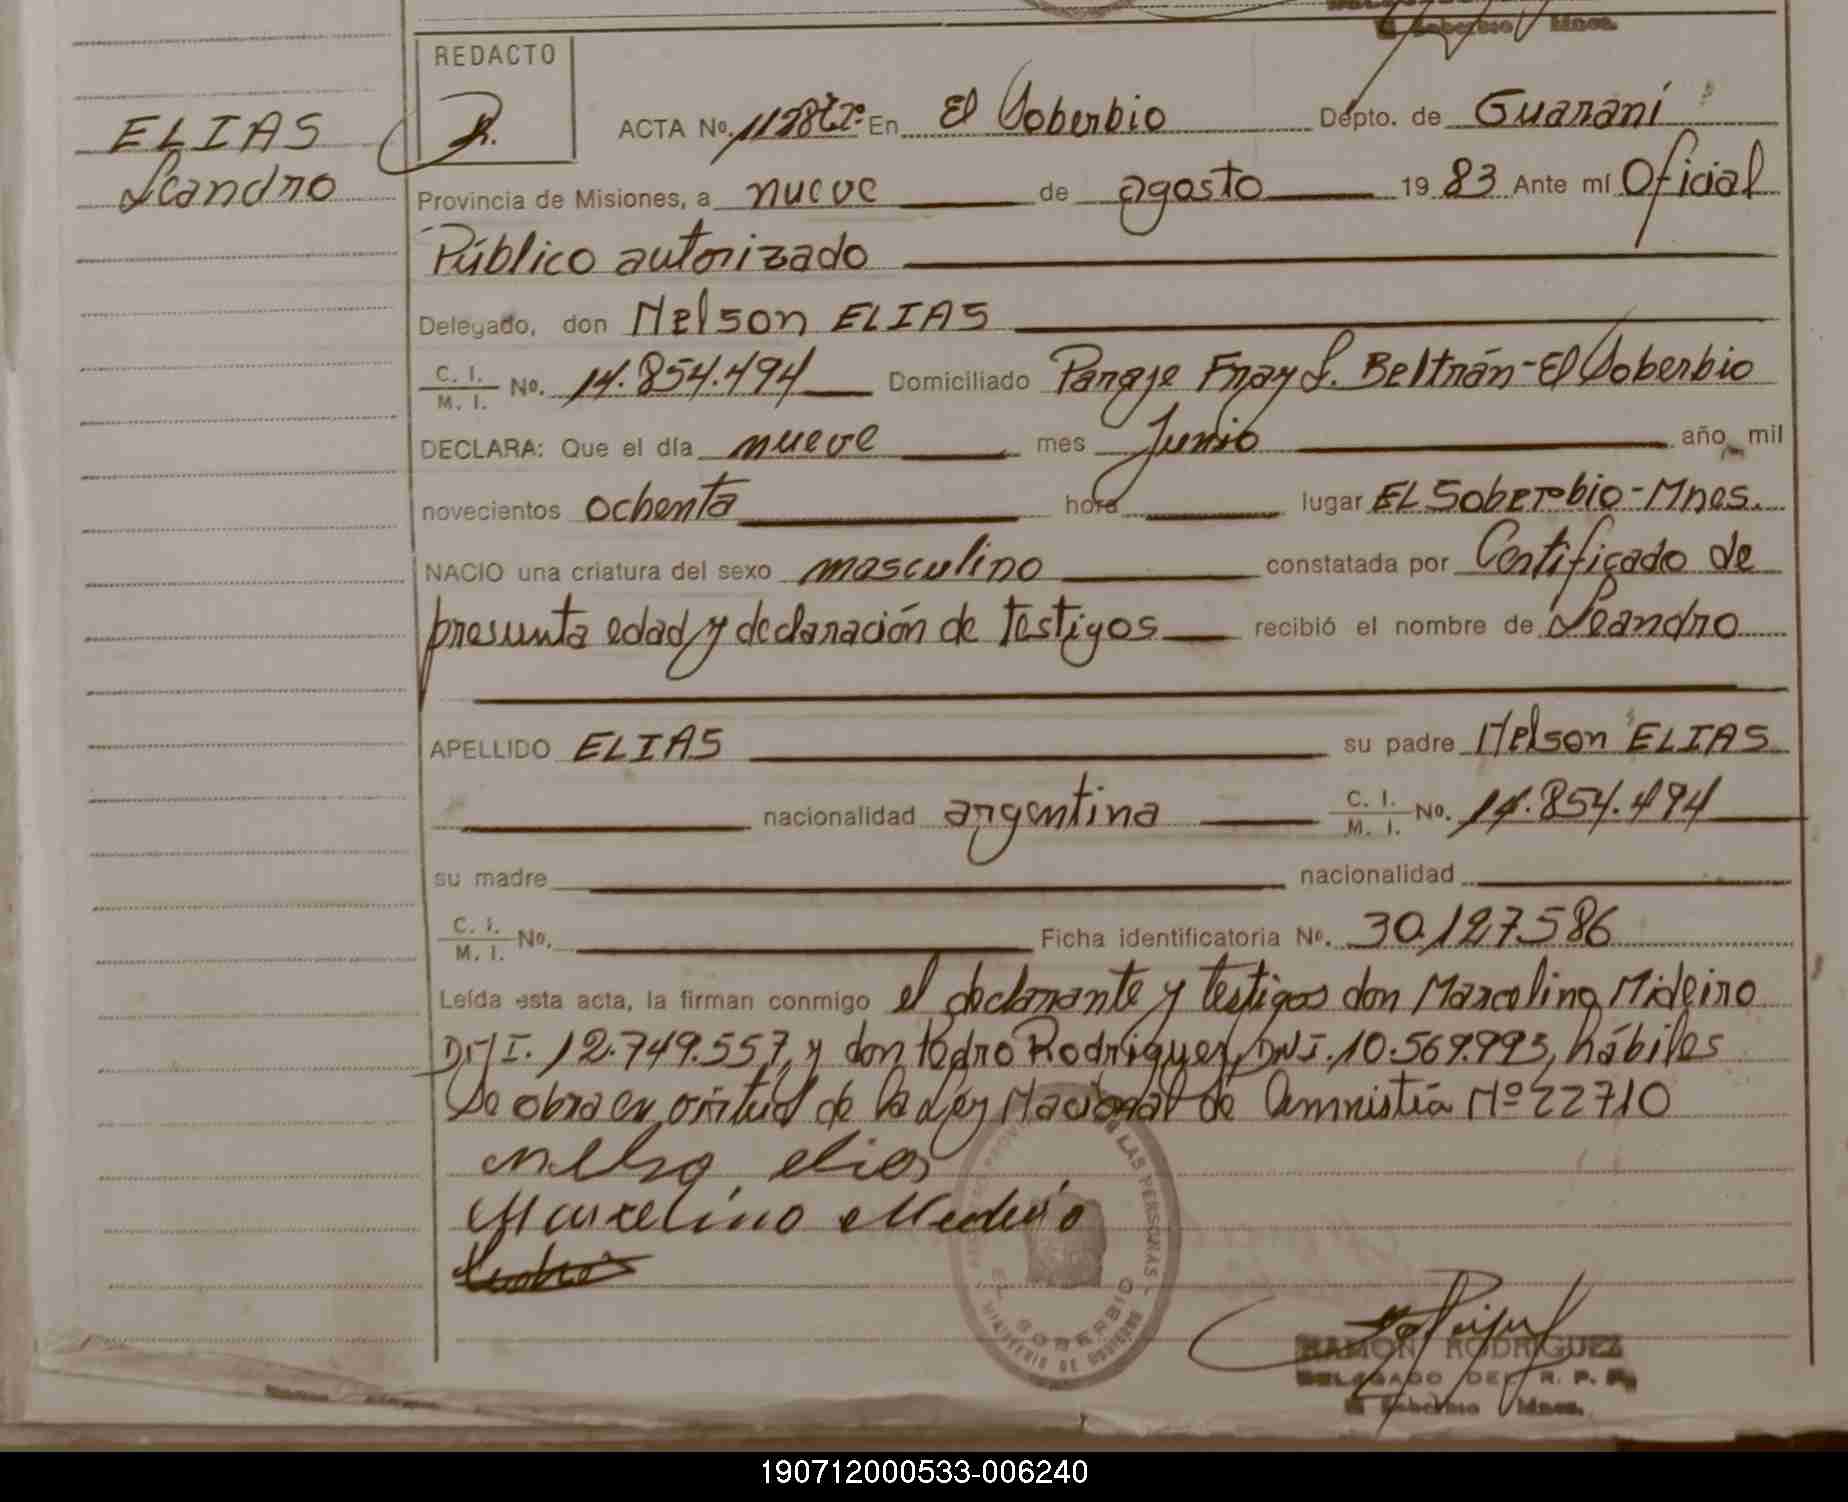 El Soberbio Mnes.
REDACTO
ELIAS
Leandro
ACTA No. En El Soberbio Depto. de Guaraní
Provincia de Misiones, a nueve de agosto 19 83 Ante mí Oficial
Público autorizado
Delegado, don Nelson ELIAS
C. I. / M. I. No. 14.854.494 Domiciliado Paraje Fray L. Beltrán-El Soberbio
DECLARA: Que el día nueve mes Junio año mil
novecientos ochenta hora lugar EL Soberbio-Mnes.
NACIO una criatura del sexo masculino constatada por Certificado de
presunta edad y declaración de testigos recibió el nombre de Leandro
APELLIDO ELIAS su padre Nelson ELIAS
nacionalidad argentina C. I. / M. I. No. 14.854.494
su madre nacionalidad
C. I. / M. I. No. Ficha identificatoria No. 30.127.586
Leída esta acta, la firman conmigo el declarante y testigos don Marcelino Mideiro
DNI. 12.749.557, y don Pedro Rodriguez, DNI. 10.569.993, hábiles
Se obra en virtud de la Ley Nacional de Amnistía Nº 22710
elias
Marcelino
DE LAS PERSONAS
EL SOBERBIO
MINISTERIO DE GOBIERNO
RAMON RODRIGUEZ
DELEGADO DEL R. P. P.
El Soberbio Mnes.
190712000533-006240